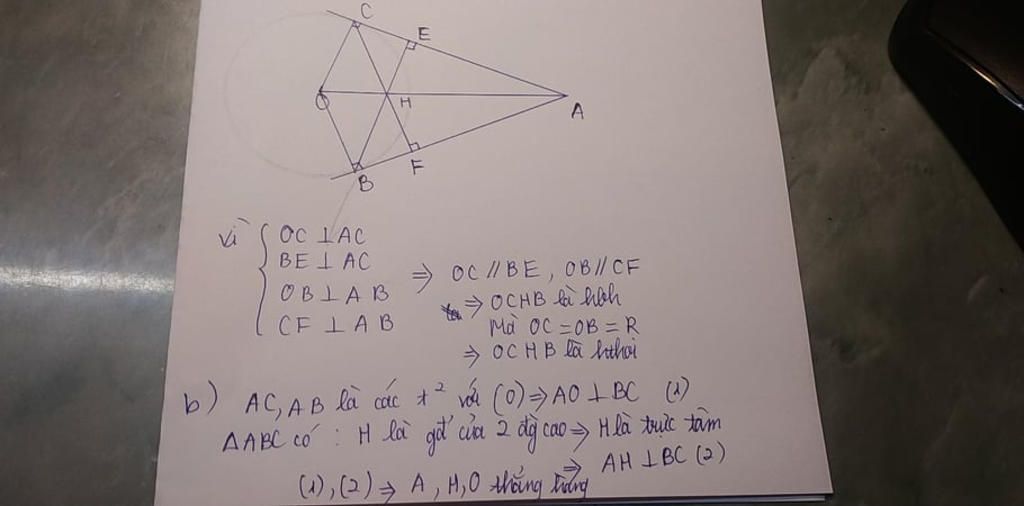 C
E
O
H
A
F
B
Vì { OC ⊥ AC
BE ⊥ AC
OB ⊥ AB
CF ⊥ AB
⇒ OC // BE, OB // CF
⇒ OCHB là hbh
Mà OC = OB = R
⇒ OCHB là hthoi
b) AC, AB là các t² với (O) ⇒ AO ⊥ BC (1)
ΔABC có : H là gđ của 2 đg cao ⇒ H là trực tâm
⇒ AH ⊥ BC (2)
(1), (2) ⇒ A, H, O thẳng hàng